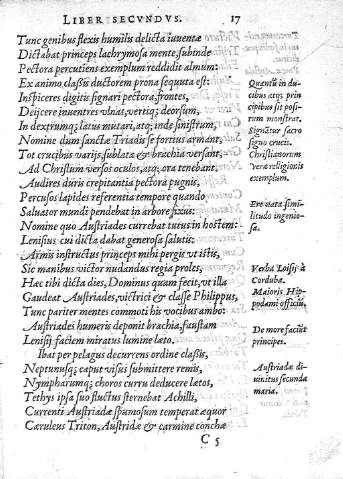 LIBER SECVNDVS. 17
Tunc genibus flexis humilis delicta iuuentæ
Dictabat princeps lachrymosa mente, subinde
Pectora percutiens exemplum reddidit almum:
Ex animo classis ductorem prona sequuta est:
Inspiceres digitis signari pectora, frontes,
Deijcere inuentres vlnas, vertiq; deorsum,
In dextrumq; latus mutari, atq; inde sinistrum,
Nomine dum sanctæ Triadis se fortius armant,
Tot crucibus varijs, sublata & brachia versant,
Ad Christum versos oculos, atq; ora tenebant,
Audires duris crepitantia pectora pugnis,
Percussos lapides referentia tempore quando
Saluator mundi pendebat in arbore fixus:
Nomine quo Austriades currebat tutus in hostem:
Lenisius cui dicta dabat generosa salutis:
Armis instructus princeps mihi pergis vt istis,
Sic manibus victor nudandus regia proles,
Hæc tibi dicta dies, Dominus quam fecit, vt illa
Gaudeat Austriades, victrici & classe Philippus,
Tunc pariter mentes commoti his vocibus ambo:
Austriades humeris deponit brachia, faustam
Lenisij faciem miratus lumine læto.
Ibat per pelagus decurrens ordine classis,
Neptunusq; caput visus submittere remis,
Nympharumq; choros curru deducere lætos,
Tethys ipsa suo fluctus sternebat Achilli,
Currenti Austriadæ spumosum temperat æquor
Cæruleus Triton, Austridæ & carmine conchæ
C 5
Quantũ in du-
cibus atq; prin
cipibus sit posi-
tum monstrat.
Signatur sacro
signo crucis.
Christianorum
veræ religionis
exemplum.
Ere nata simi-
litudo ingenio-
sa.
Verba Loisij à
Corduba.
Maioris Hip-
podami officiũ.
De more faciũt
principes.
Austriadæ di-
uinitus secunda
maria.